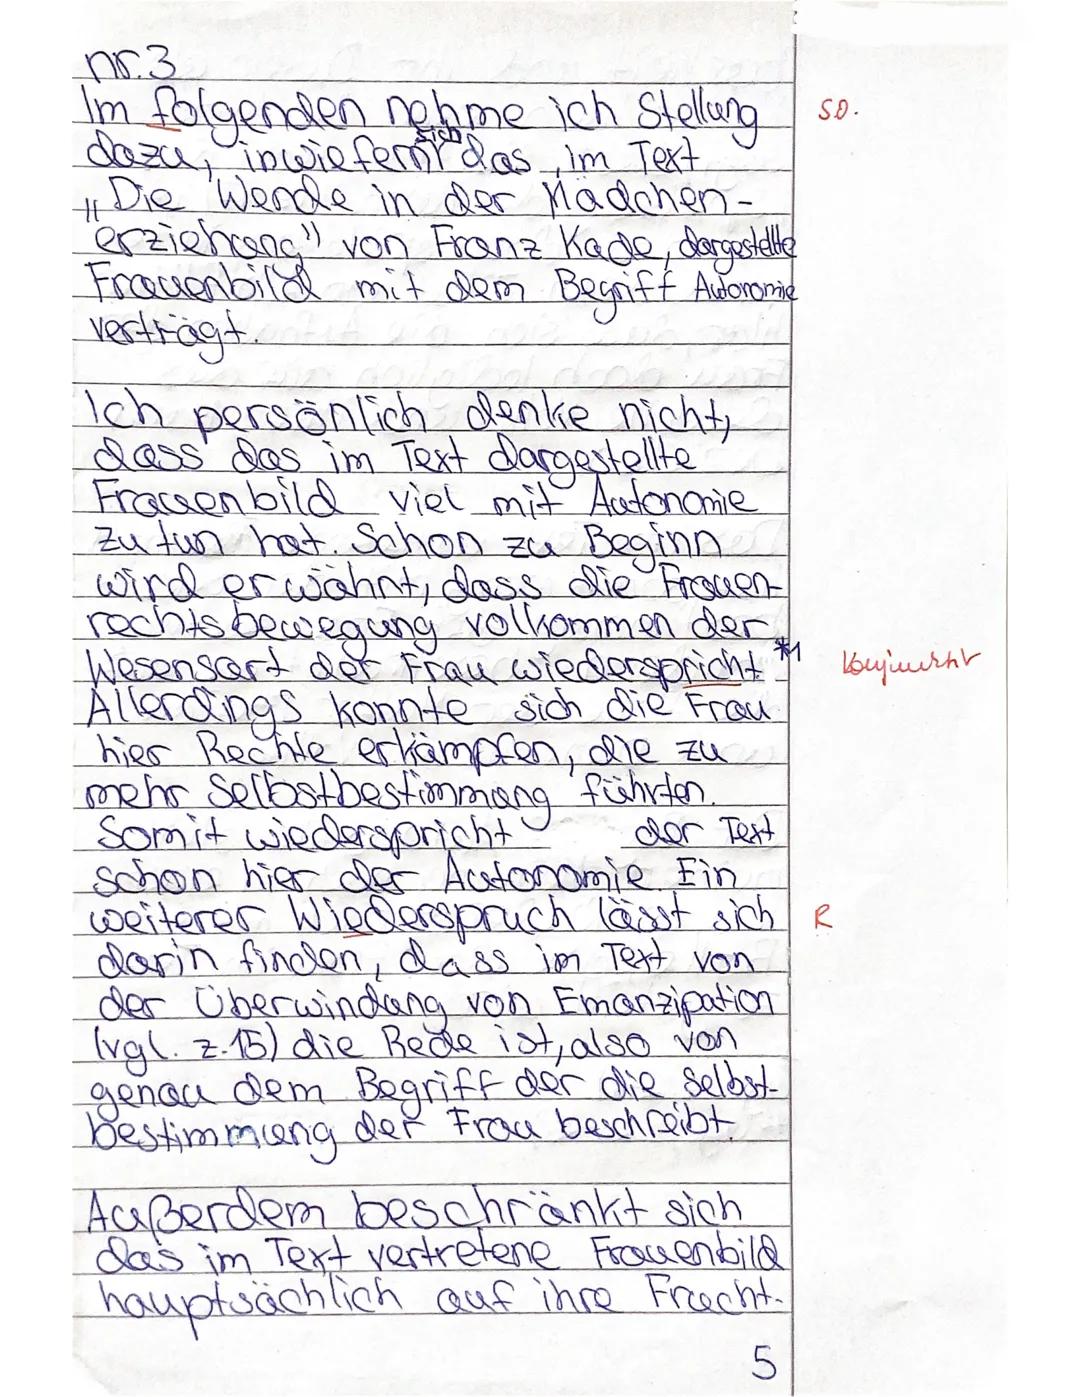 nr. 3
Im folgenden nehme ich Stellung
s.o.
dazu, inwiefern sich das, im Text
„Die Wende in der Mädchen-
erziehung" von Franz Kade, dargestellte
Frauenbild mit dem Begriff Autonomie
verträgt.
Ich persönlich denke nicht,
dass das im Text dargestellte
Frauenbild viel mit Autonomie
zu tun hat. Schon zu Beginn
wird erwähnt, dass die Frauen-
rechtsbewegung vollkommen der
Wesensart der Frau wiederspricht. *1
Konjunktiv
Allerdings konnte sich die Frau
hier Rechte erkämpfen, die zu
mehr Selbstbestimmung führten.
Somit wiederspricht der Text
schon hier der Autonomie. Ein
weiterer Wiederspruch lässt sich
R
darin finden, dass im Text von
der Überwindung von Emanzipation
(vgl. Z.15) die Rede ist, also von
genau dem Begriff der die Selbst-
bestimmung der Frau beschreibt.
Außerdem beschränkt sich
das im Text vertretene Frauenbild
hauptsächlich auf ihre Frucht-
5